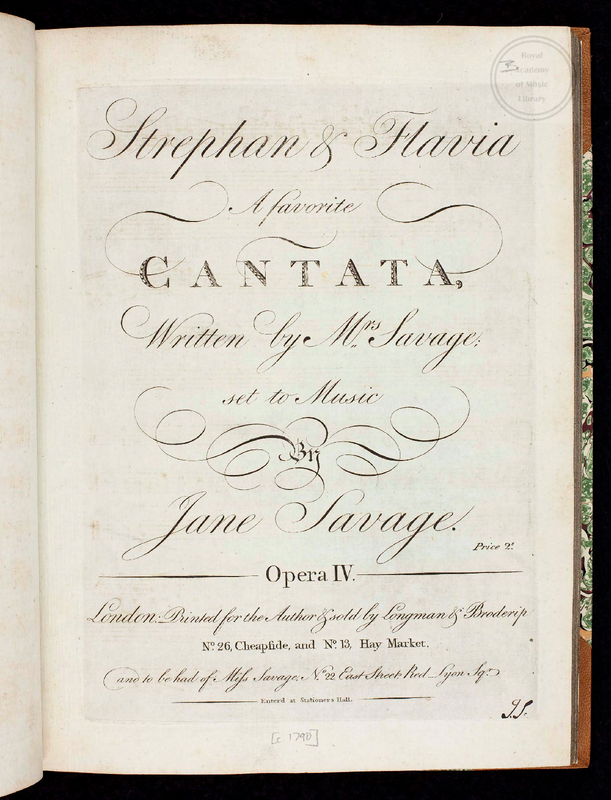 Royal
Academy
of Music
Library
Strephan & Flavia
A favorite
CANTATA,
Written by Mrs Savage;
set to Music
By
Jane Savage.
Price 2s
Opera IV.
London: Printed for the Author & sold by Longman & Broderip
No. 26, Cheapſide, and No. 13, Hay Market.
and to be had of Miſs Savage, No. 22 East Street Red Lyon Sqr.
Enter'd at Stationers Hall.
J.S.
[c 1790]